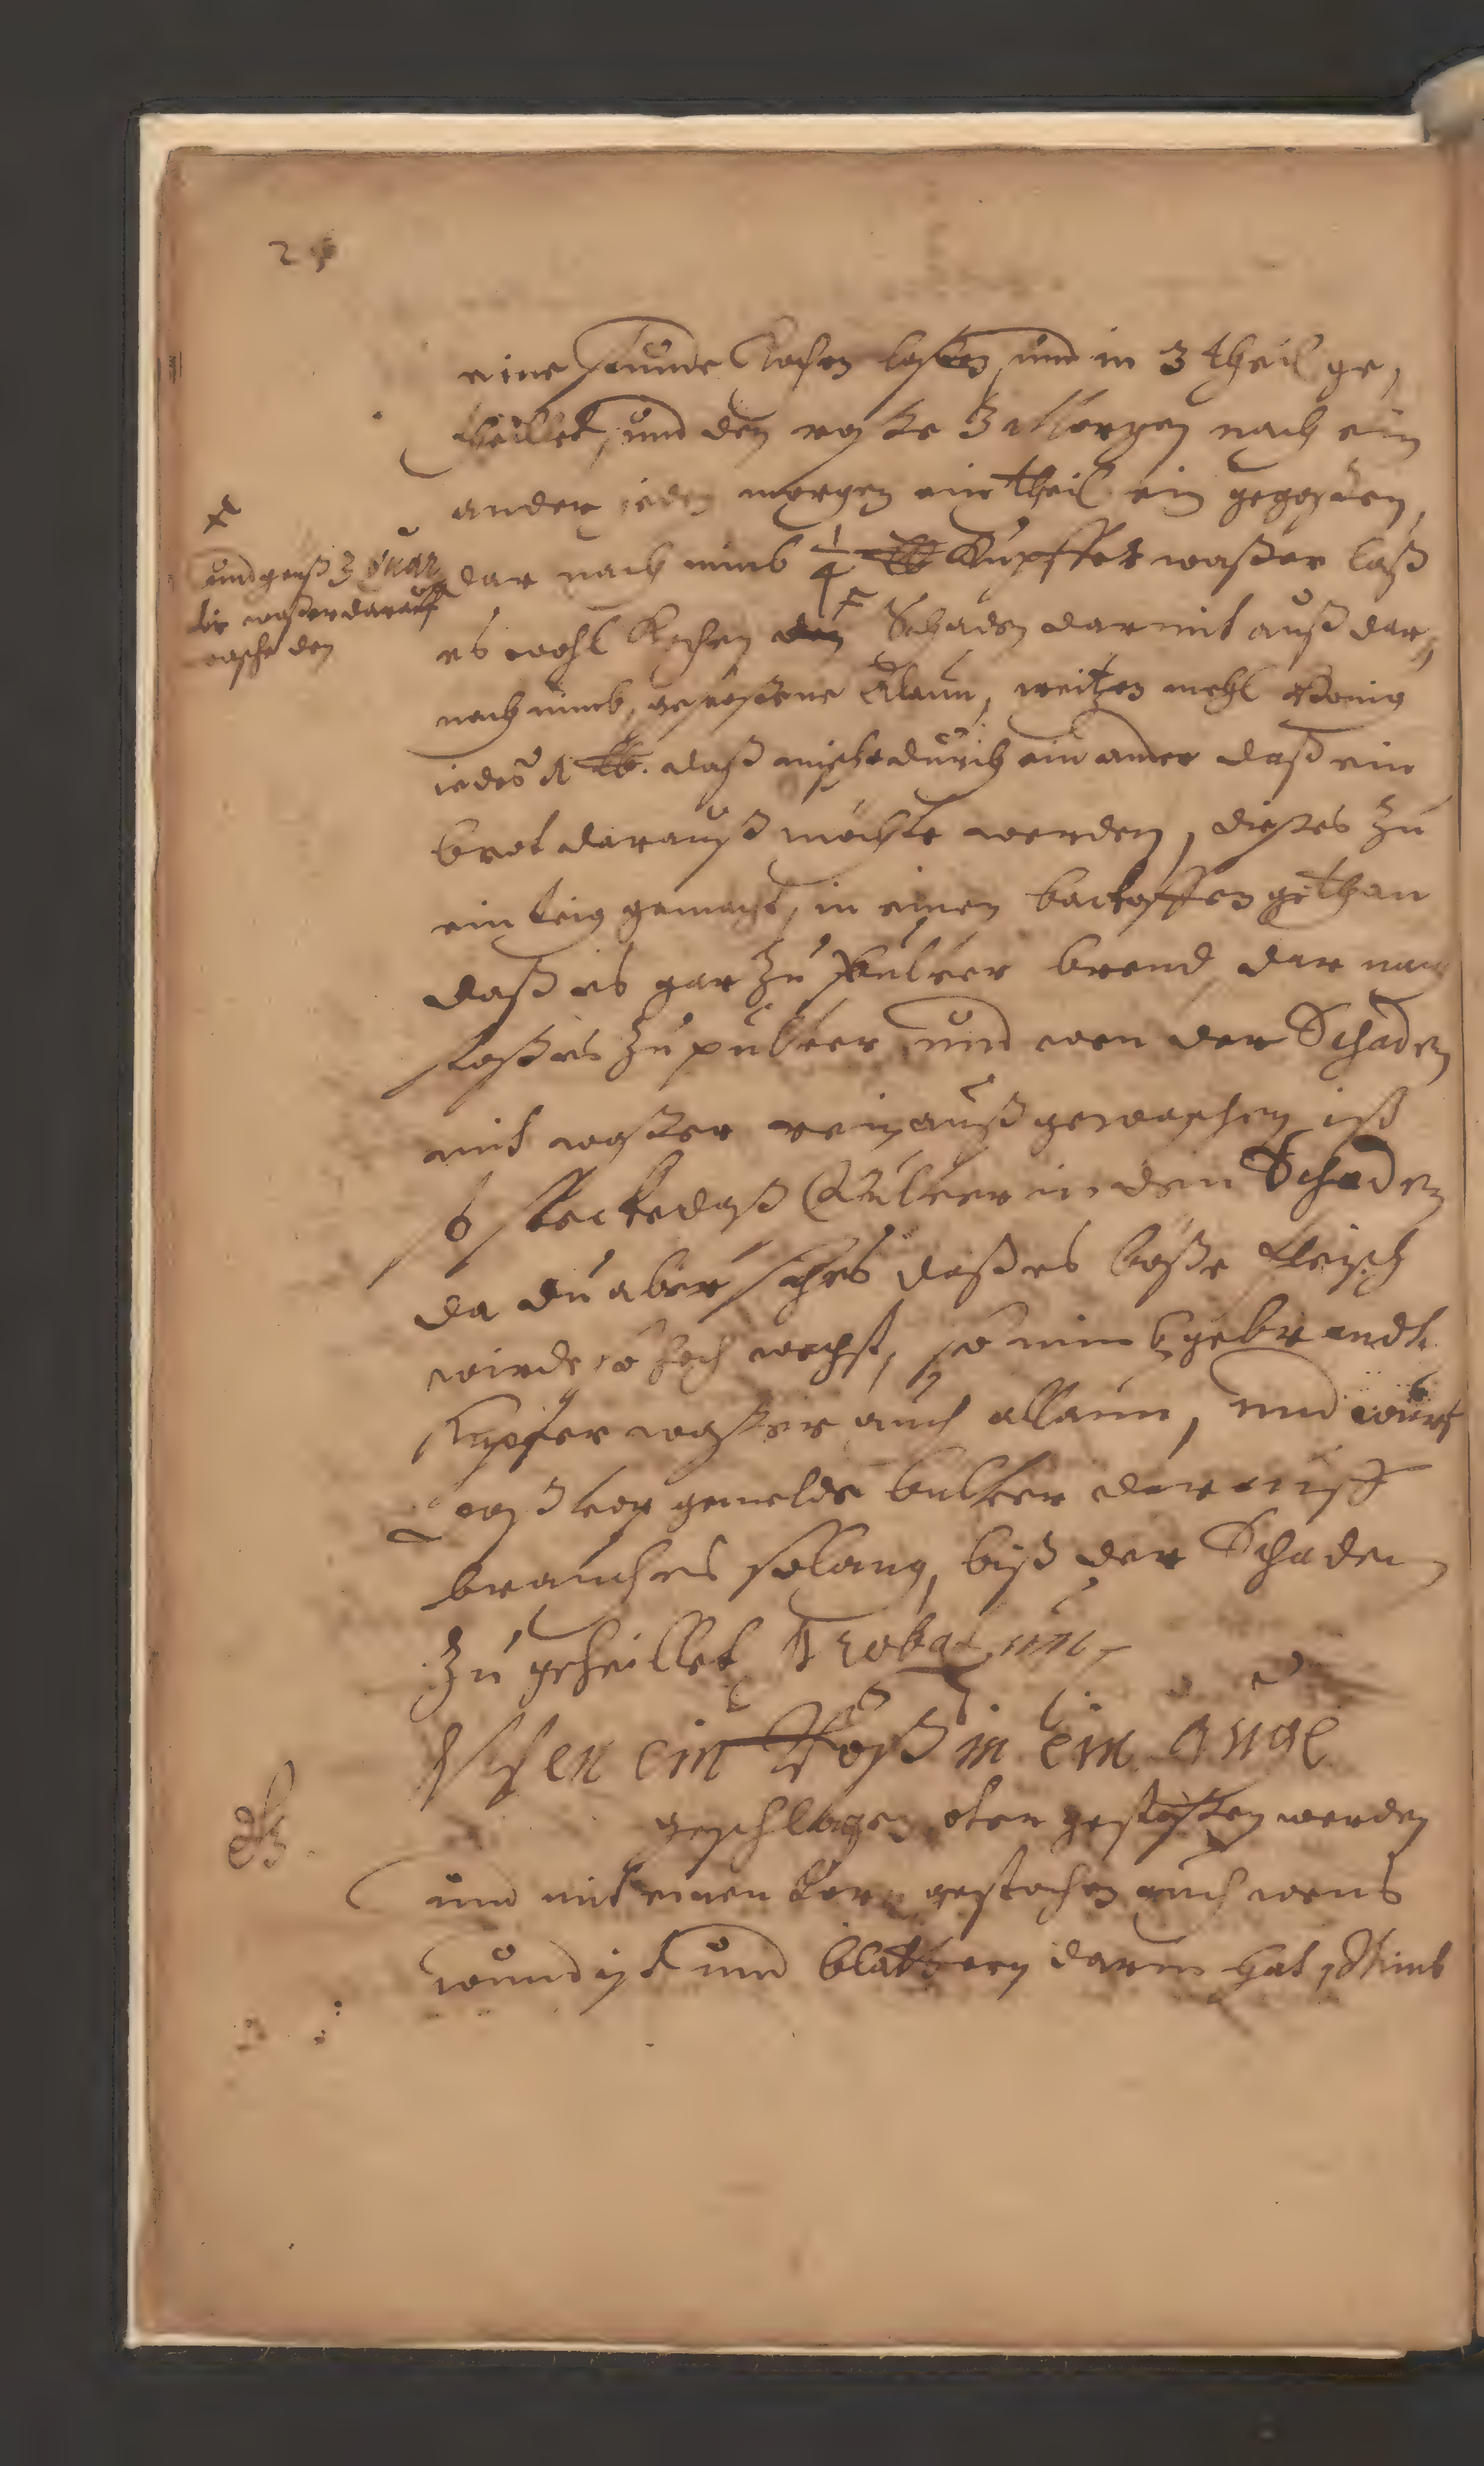 24
eine stunde Kochen laßen, und in 3 theil ge,
theillet, und den roße 3 Morgen nach ein
ander jeden morgen ein theil ein gegoßen,
dar nach nimb 1/4 lb Kupffer waßer laß
es wohl Kochen den Schaden darmit auß dar,
nach nimb, gestoßene Alaun, weitzen mehl Honig
jedes 1 lb. daß mische durch ein ander daß ein
brot darauß möchte werden, dießes zu
ein teig gemacht, in einen backoffen gethan
daß es gar zu Pulver brend, dar nach
stoß es zu pulver und wen der Schaden
mit waßer rein auß gewaschen ist
so stecke daß Pulver in den Schaden
da du aber sihes daß es böße fleisch
wirde so hoch wechst, so nimb gebrandt
Kupfer waßer auch allaun, und wurf
daß vor gemelde bulver darauff
brauch es solang, biß der Schaden
zu geheillet Probatum
Wen ein Roß in ein Auge
geschlagen oder gestoßen werden
und mit einen dorn gestochen auch wens
wund ist und blattern darin hat, Nimb
und geuß 3 quar
tir waßer darauff
wasche den